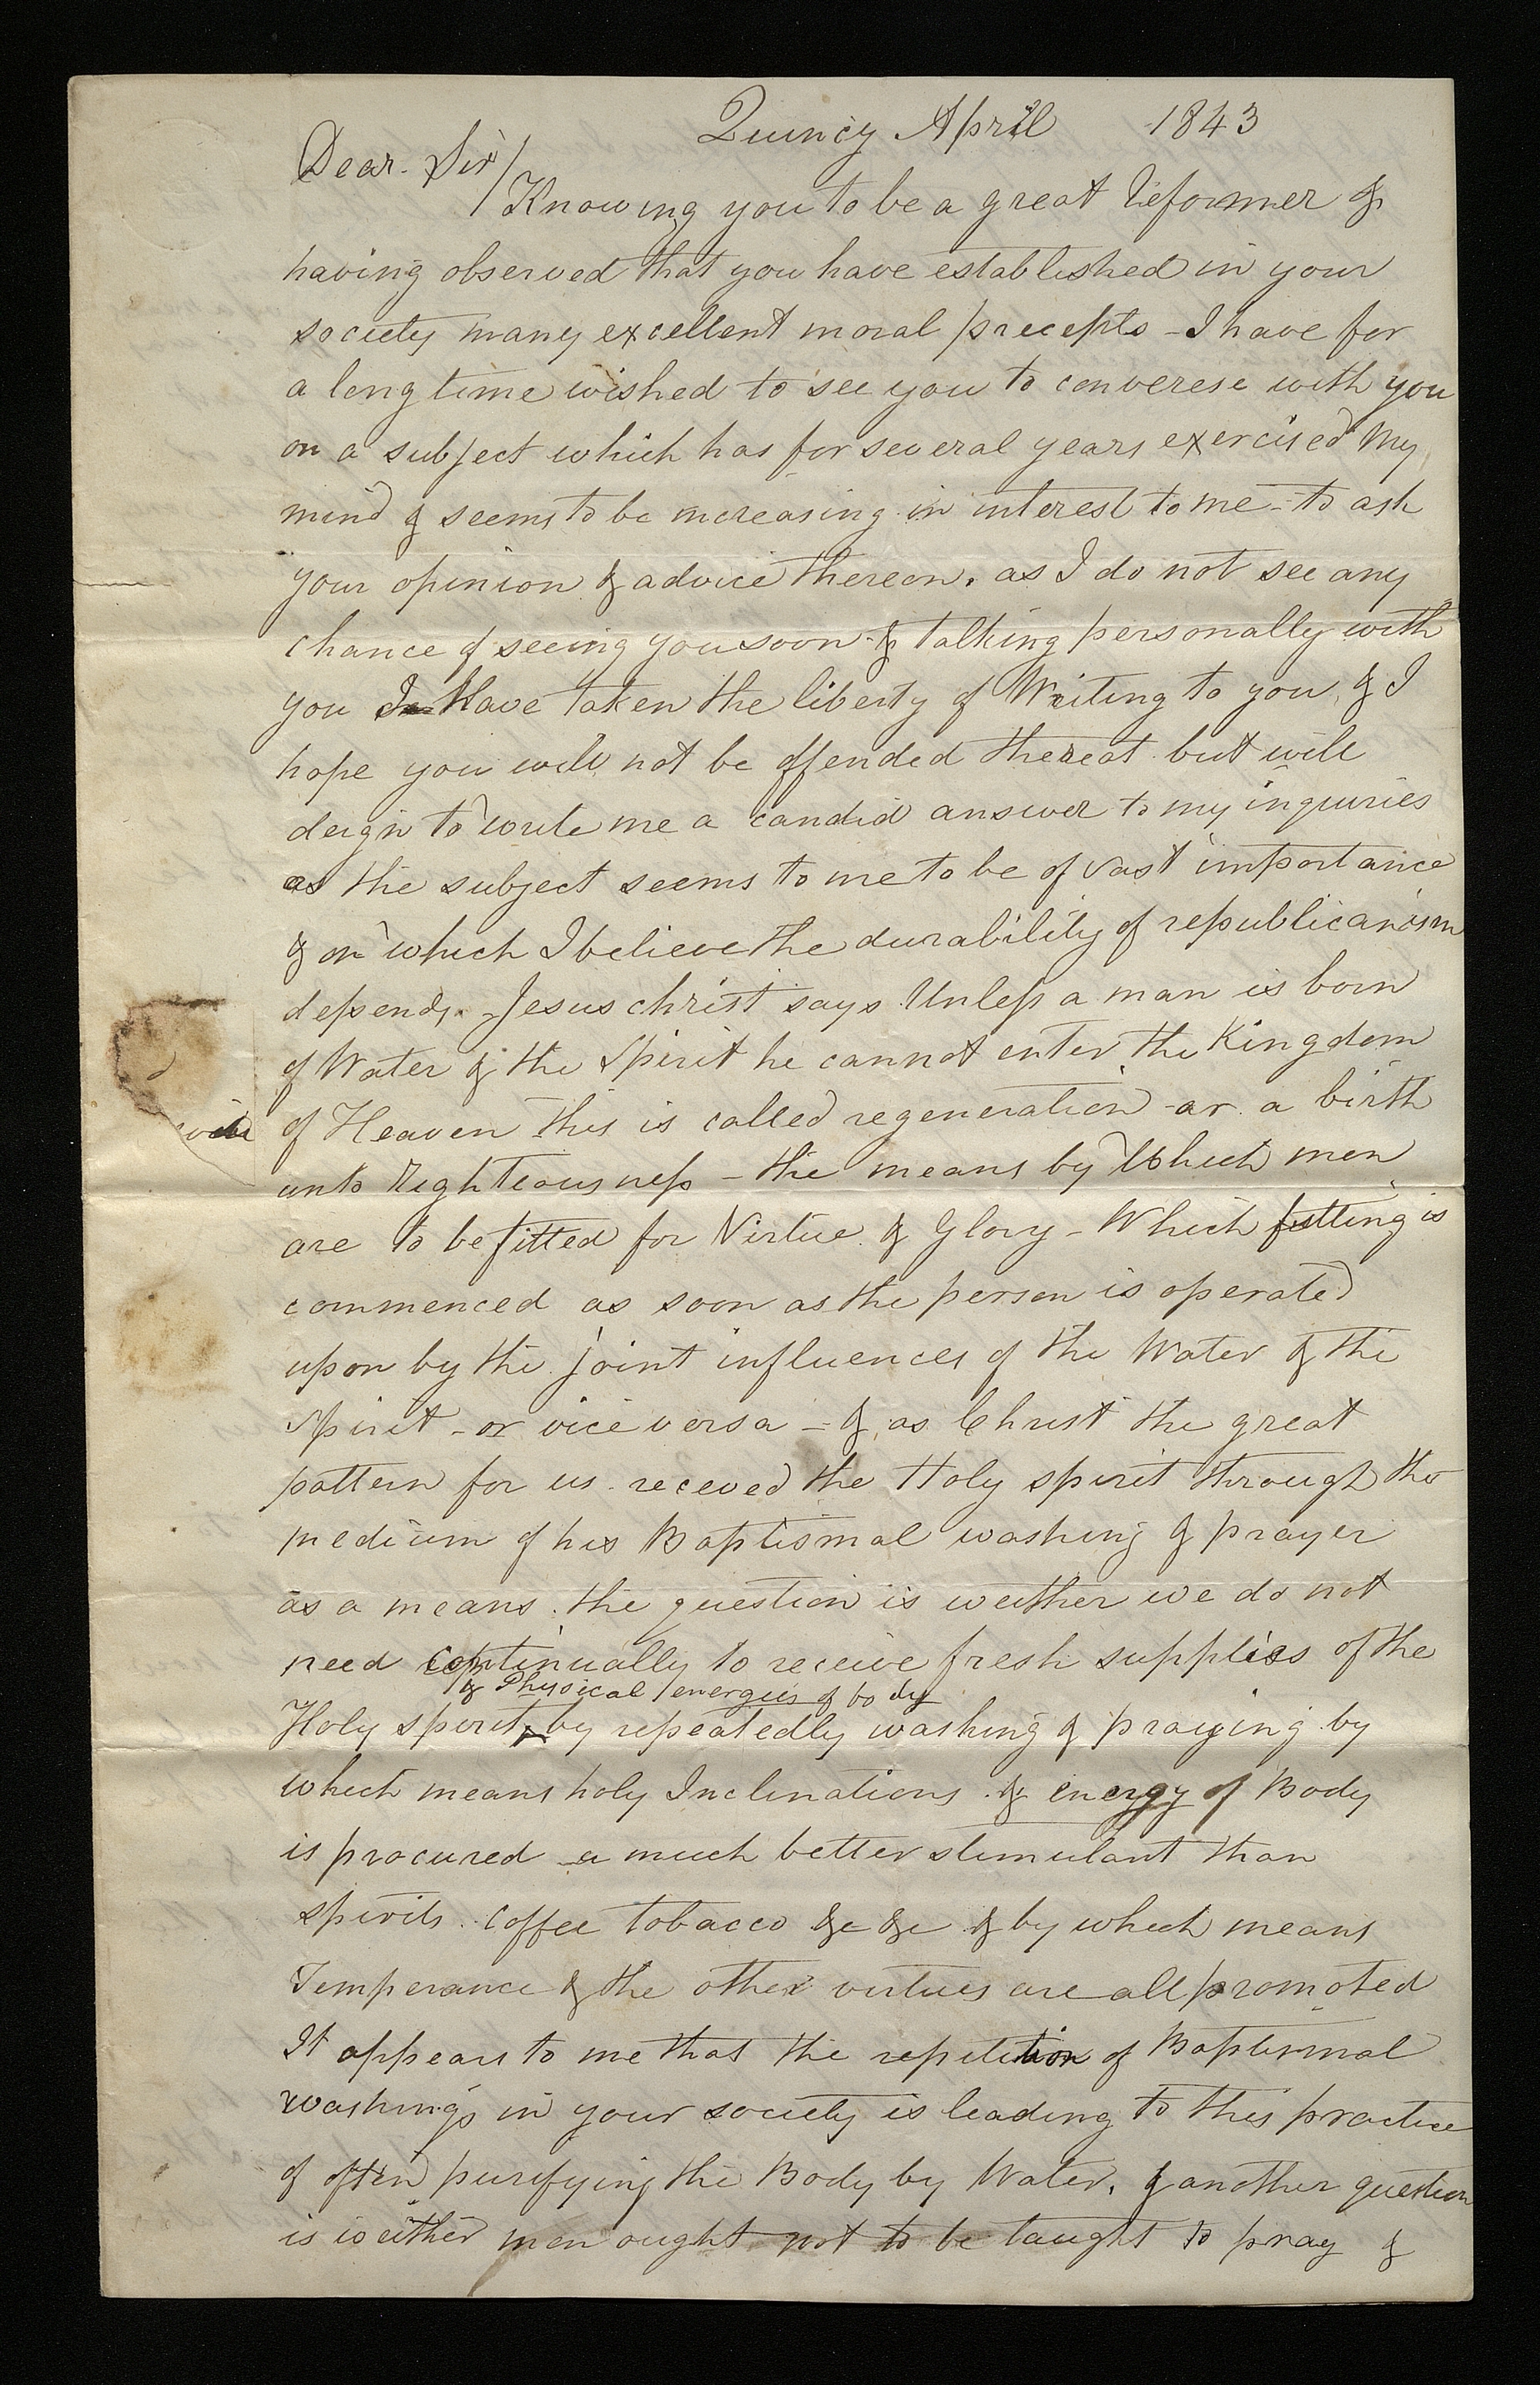 Quincy April 1843
Dear Sir/
Knowing you to be a great Reformer &
having observed that you have established in your
society many excellent moral precepts - I have for
a long time wished to see you to converese with you
on a subject which has for several years exercised My
mind & seems to be increasing in interest to me - to ask
your opinion & advice thereon, as I do not see any
chance of seeing you soon & talking personally with
you I Have taken the liberty of Writing to you, & I
hope you will not be offended thereat but will
deign to write me a candid answer to my inquiries
as the subject seems to me to be of vast importance
& on which I believe the durability of republicanism
depends. - Jesus christ says Unless a man is born
of Water & the Spirit he cannot enter the Kingdom
of Heaven this is called regeneration - or a birth
unto Righteousness - the means by Which men
are to be fitted for Virtue & Glory - Which fitting is
commenced as soon as the person is operated
upon by the joint influences of the Water & the
Spirit - or vice versa - & as Christ the great
pattern for us receved the Holy spirit through the
medium of his Baptismal washing & prayer
as a means. the question is weither we do not
need continually to receive fresh supplies of the
& Physical energies of body
Holy spirit by repeatedly washing & praying by
which means holy Inclinations & energy of Body
is procured a much better stimulant than
spirits. coffee tobacco &c &c & by which means
Temperance & the other virtues are all promoted
It appears to me that the repitition of Baptismal
washings in your society is leading to this practice
of often purifying the Body by Water. & another question
is weither men ought not to be taught to pray &